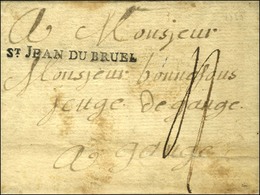 A Monsieur
ST JEAN DU BRUEL
Monsieur bonnefous
jeuge de gange
A gange